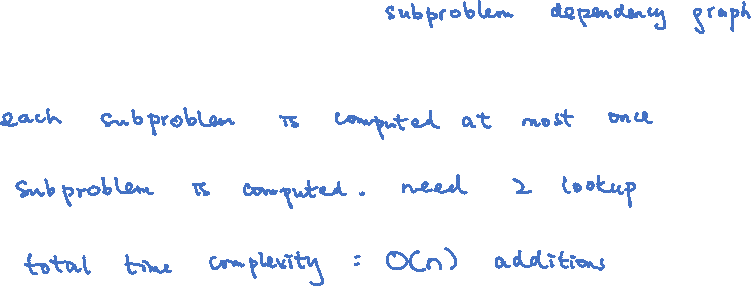 subproblem dependency graph
each subproblem is computed at most once
subproblem is computed. need 2 lookup
total time complexity = O(n) additions